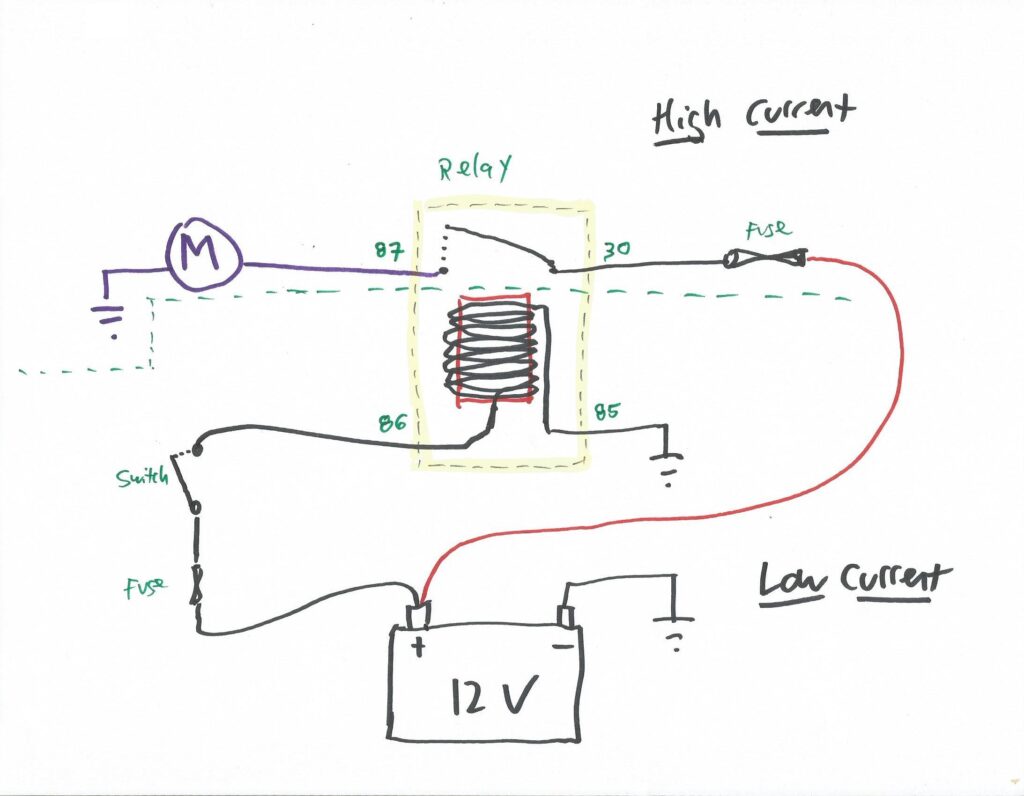 High Current
Relay
M
87
30
Fuse
86
85
Switch
Fuse
Low Current
+
−
12 V